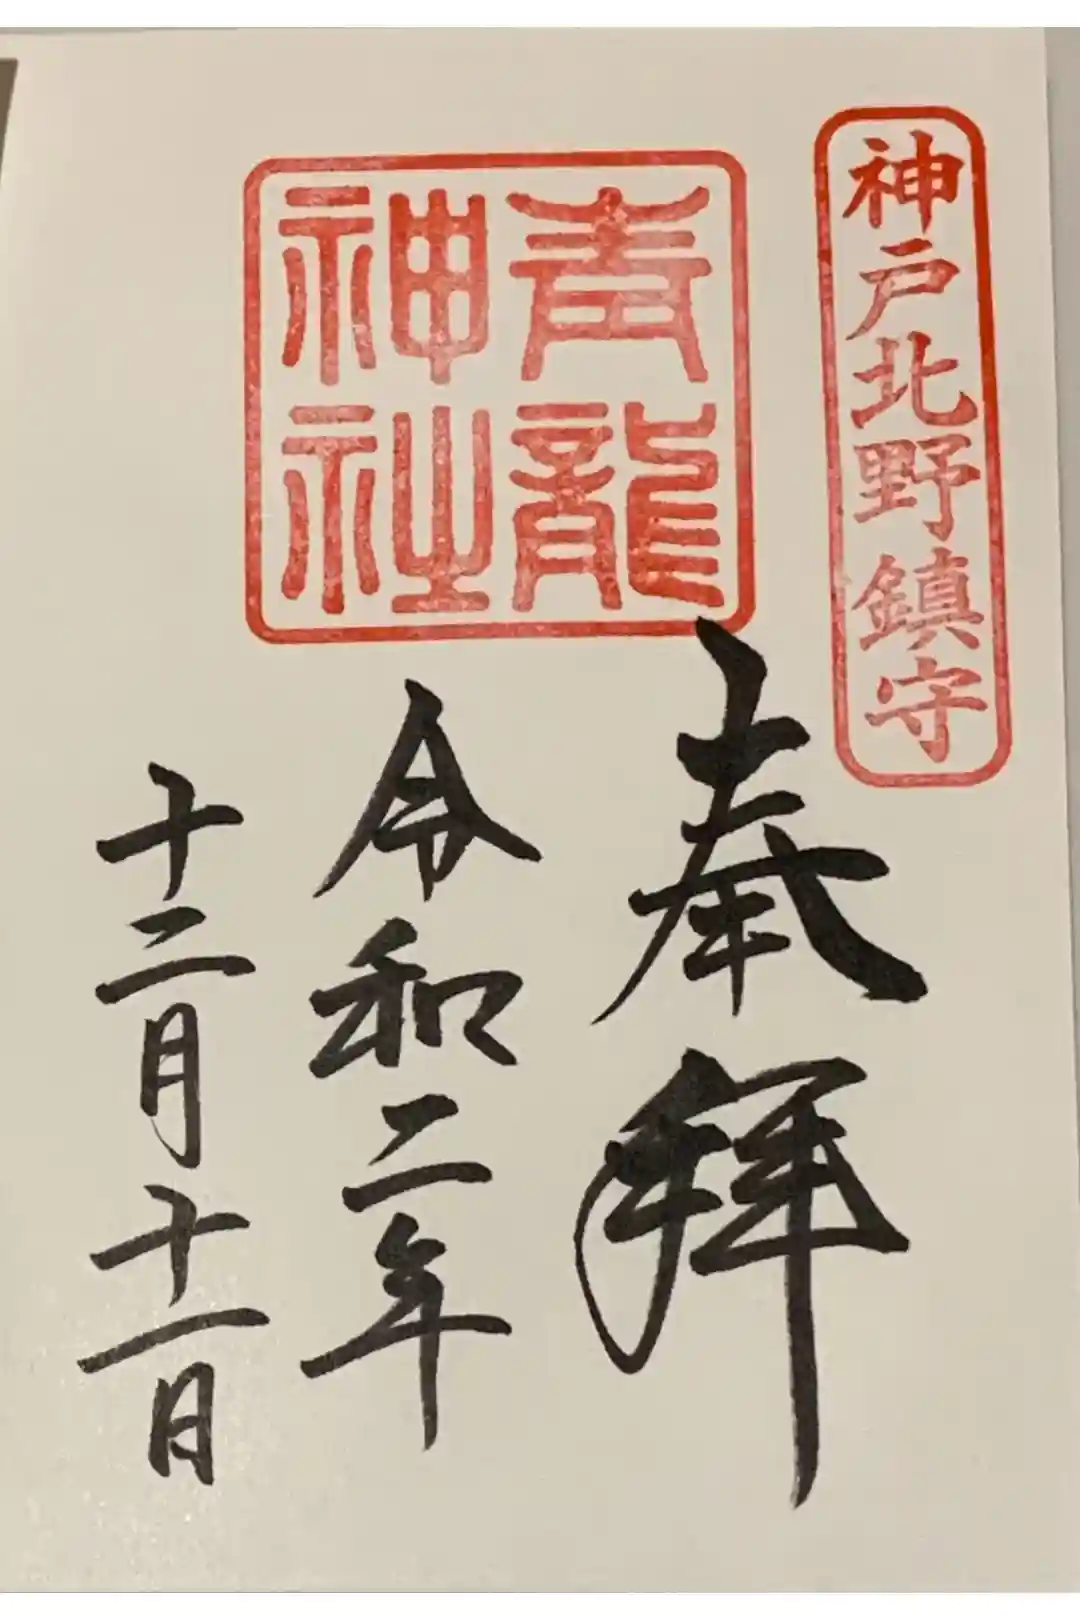 神戸北野鎮守
青龍
神社
奉拝
令和二年
十二月十一日